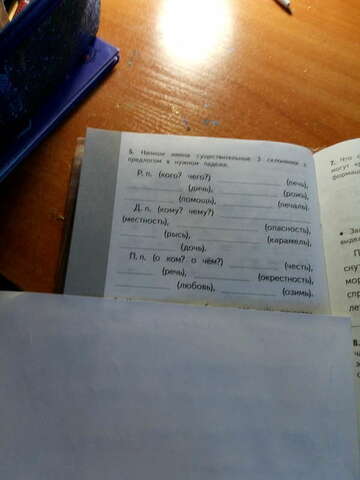 5. Напиши имена существительные 3 склонения с
предлогом в нужном падеже.
Р. п. (кого? чего?) ____________ (печь),
____________ (дичь), ____________ (рожь),
____________ (помощь), ____________ (печаль).
Д. п. (кому? чему?) ____________
(местность), ____________ (опасность),
____________ (рысь), ____________ (карамель),
____________ (дочь).
П. п. (о ком? о чём?) ____________ (честь),
____________ (речь), ____________ (окрестность),
____________ (любовь), ____________ (озимь).
7. Что
могут
• За
выде
П
сну
мор
спр
ле
8.